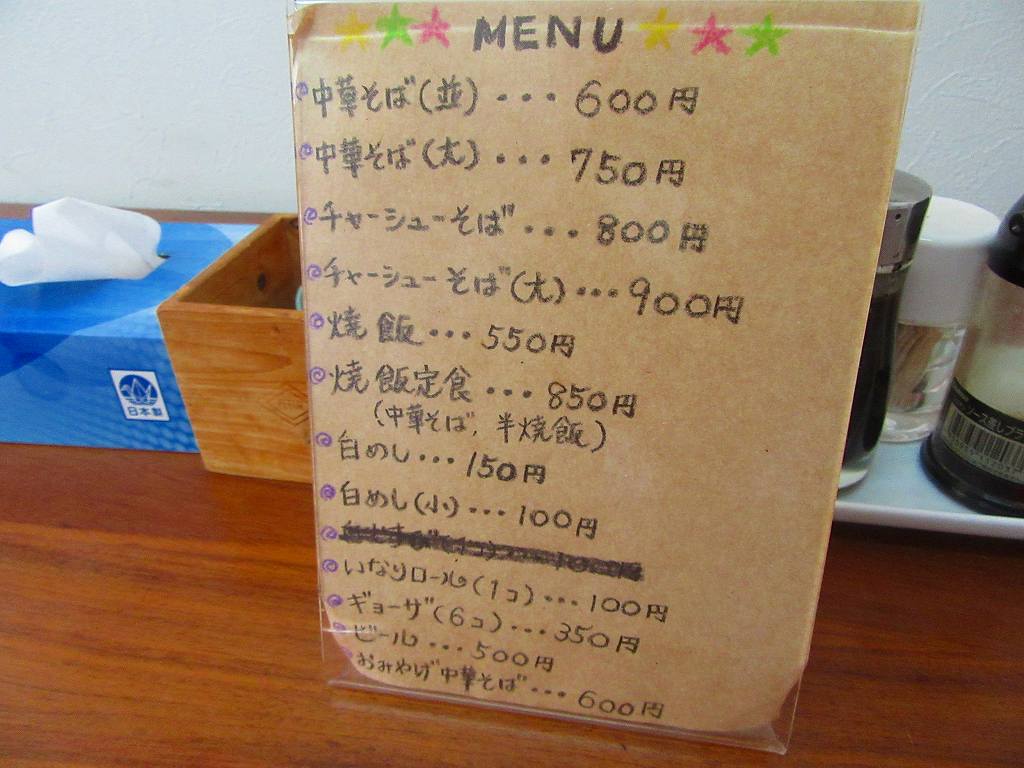 MENU
中華そば(並)・・・600円
中華そば(大)・・・750円
チャーシューそば・・・800円
チャーシューそば(大)・・・900円
焼飯・・・550円
焼飯定食・・・850円
(中華そば、半焼飯)
白めし・・・150円
白めし(小)・・・100円
いなりロール(1コ)・・・100円
ギョーザ(6コ)・・・350円
ビール・・・500円
おみやげ中華そば・・・600円
日本製